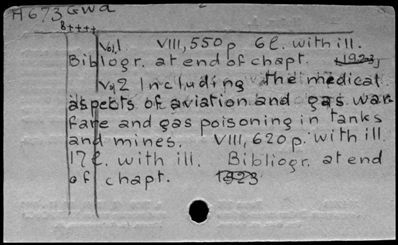 H673 Gwa
B++++
Vol.1 VIII, 550 p. 6 l. with ill.
Bibliogr. at end of chapt. 1923
Vol.2 Including the medical
aspects of aviation and gas war
fare and gas poisoning in tanks
and mines. VIII, 620 p. with ill
17 l. with ill. Bibliogr. at end
of chapt. 1923